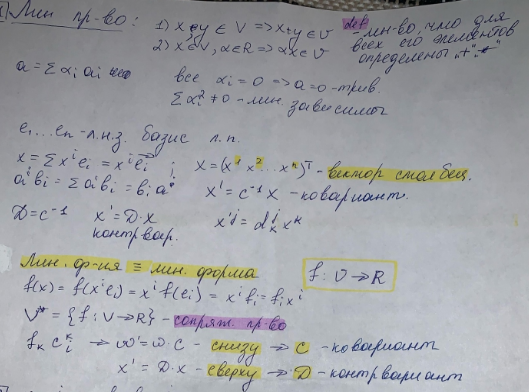 Лин пр-во: 1) x+y ∈ V => x+y ∈ V def -мн-во, что для
2) x∈V, α∈R => αx∈V всех его элементов
определены „+" „•"
a = Σ αi ai все αi = 0 => a=0 - трив.
Σ αi² ≠ 0 - лин. зависимы
e1...en - л.н.з. базис л.п.
x = Σ x^i ei = x^i ei ; x = (x¹ x² ... xⁿ)ᵀ - вектор столбец.
a^i bi = Σ a^i bi = bi a^i x' = c⁻¹ x - ковариант.
D = c⁻¹ x' = D·x x'^j = d^j_k x^k
контрвар.
Лин. ф-ия ≡ лин. форма f: V → R
f(x) = f(x^i ei) = x^i f(ei) = x^i fi = fi x^i
V* = {f: V→R} - сопряж. пр-во
fk c^k_i → ω' = ω·C - снизу → C - ковариант
x' = D·x - сверху → D - контрвариант